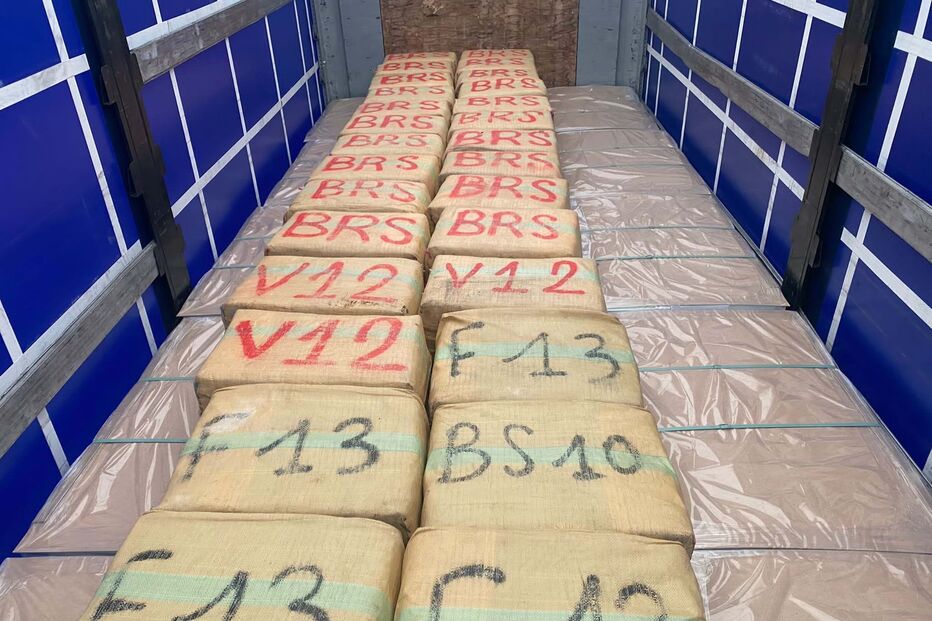 BRS BRS
BRS BRS
BRS BRS
BRS BRS
BRS BRS
BRS BRS
BRS BRS
BRS BRS
BRS BRS
BRS
V12 V12
V12 F13
F13 BS10
F13